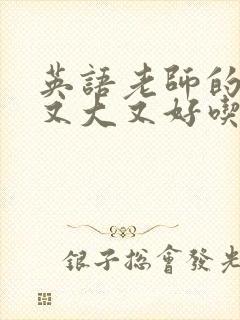 英語老師的
又大又好喫
銀子總會發光